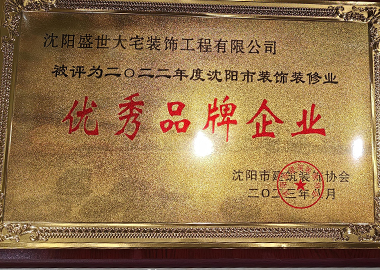 沈阳盛世大宅装饰工程有限公司
被评为二〇二二年度沈阳市装饰装修业
优秀品牌企业
沈阳市建筑装饰协会
二〇二三年八月